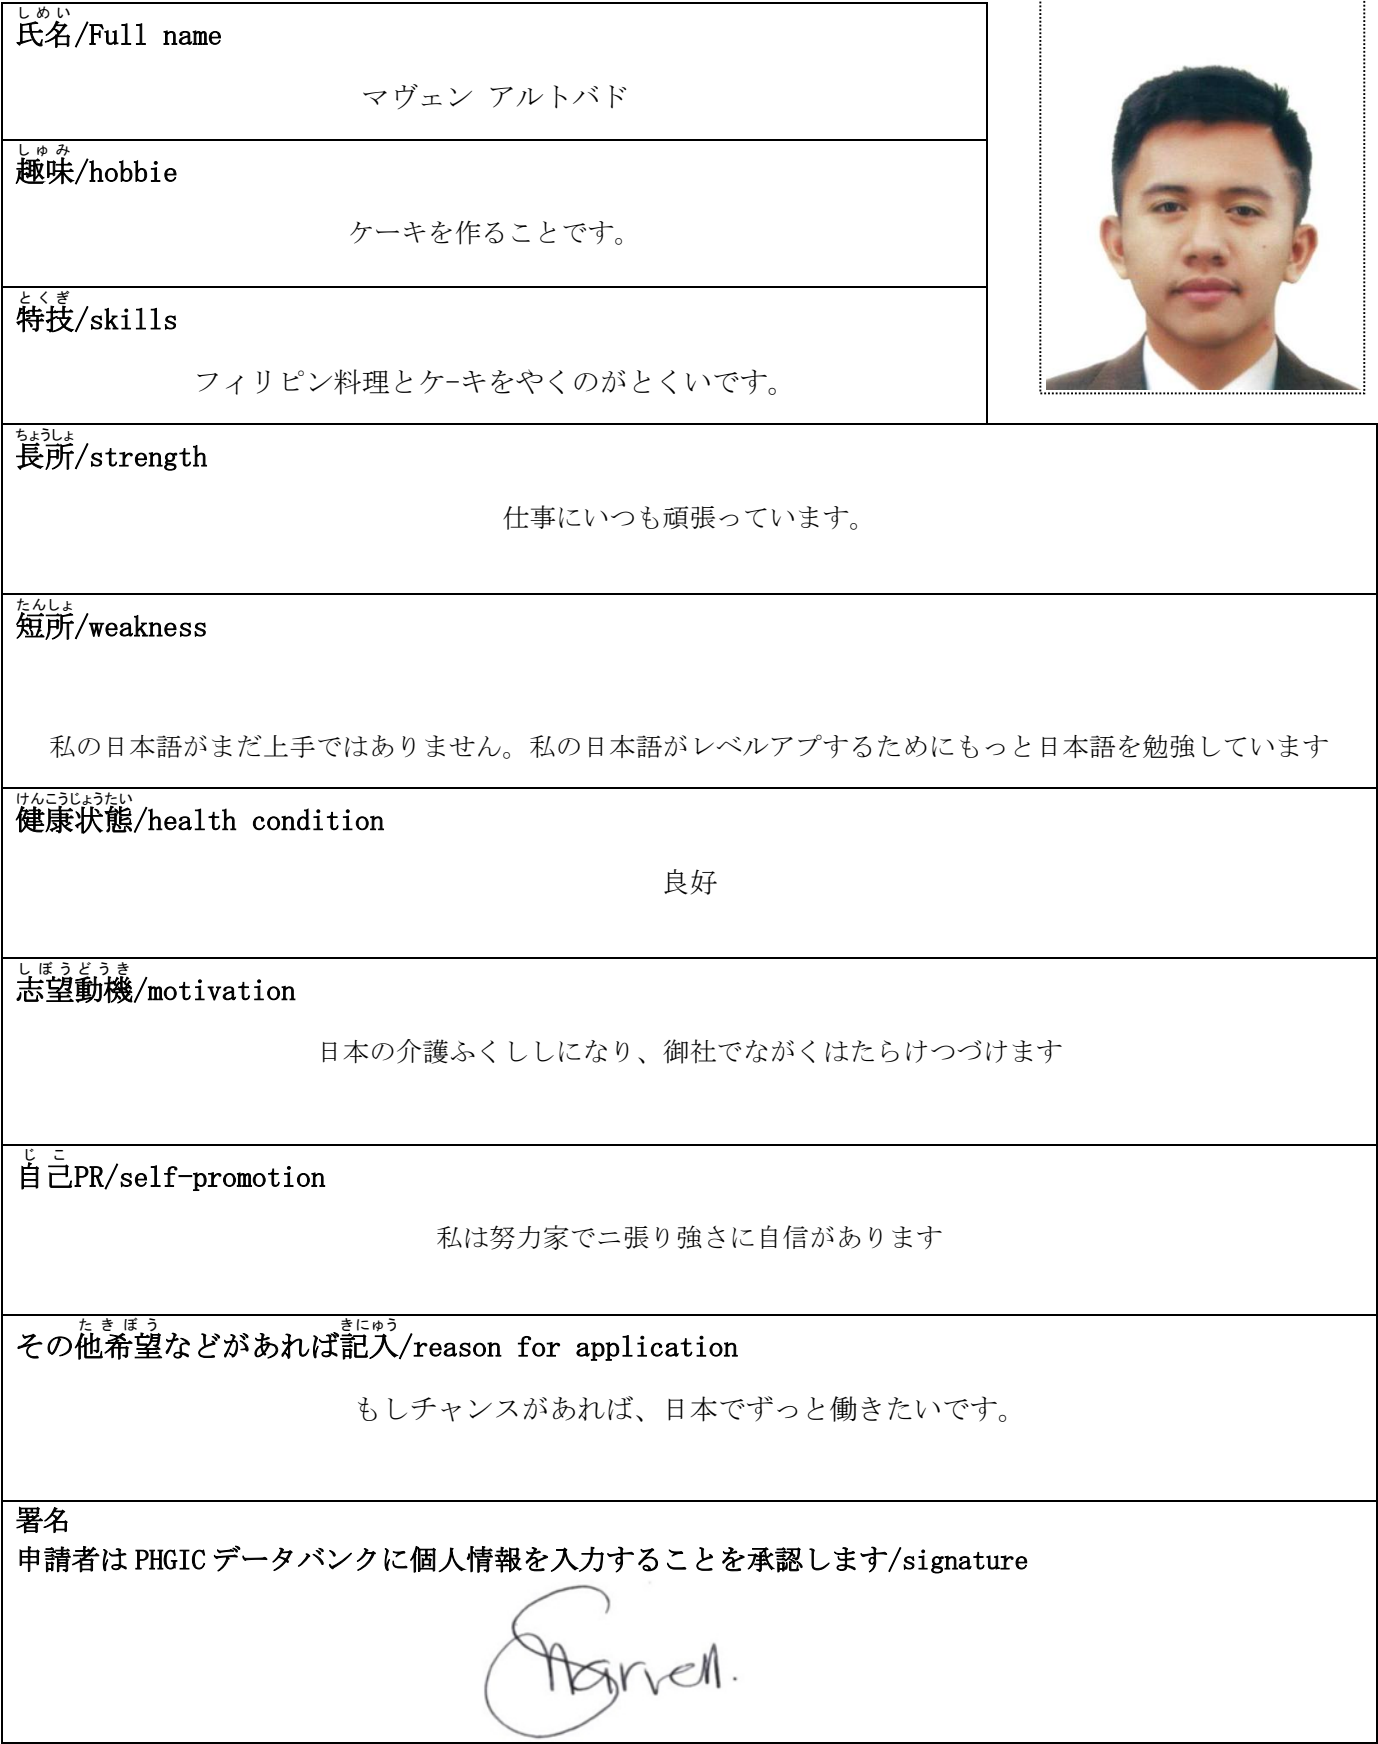 しめい
氏名/Full name
マヴェン アルトバド
しゅみ
趣味/hobbie
ケーキを作ることです。
とくぎ
特技/skills
フィリピン料理とケ-キをやくのがとくいです。
ちょうしょ
長所/strength
仕事にいつも頑張っています。
たんしょ
短所/weakness
私の日本語がまだ上手ではありません。私の日本語がレベルアプするためにもっと日本語を勉強しています
けんこうじょうたい
健康状態/health condition
良好
しぼうどうき
志望動機/motivation
日本の介護ふくししになり、御社でながくはたらけつづけます
じこ
自己PR/self-promotion
私は努力家でニ張り強さに自信があります
たきぼう きにゅう
その他希望などがあれば記入/reason for application
もしチャンスがあれば、日本でずっと働きたいです。
署名
申請者は PHGIC データバンクに個人情報を入力することを承認します/signature
Marven.